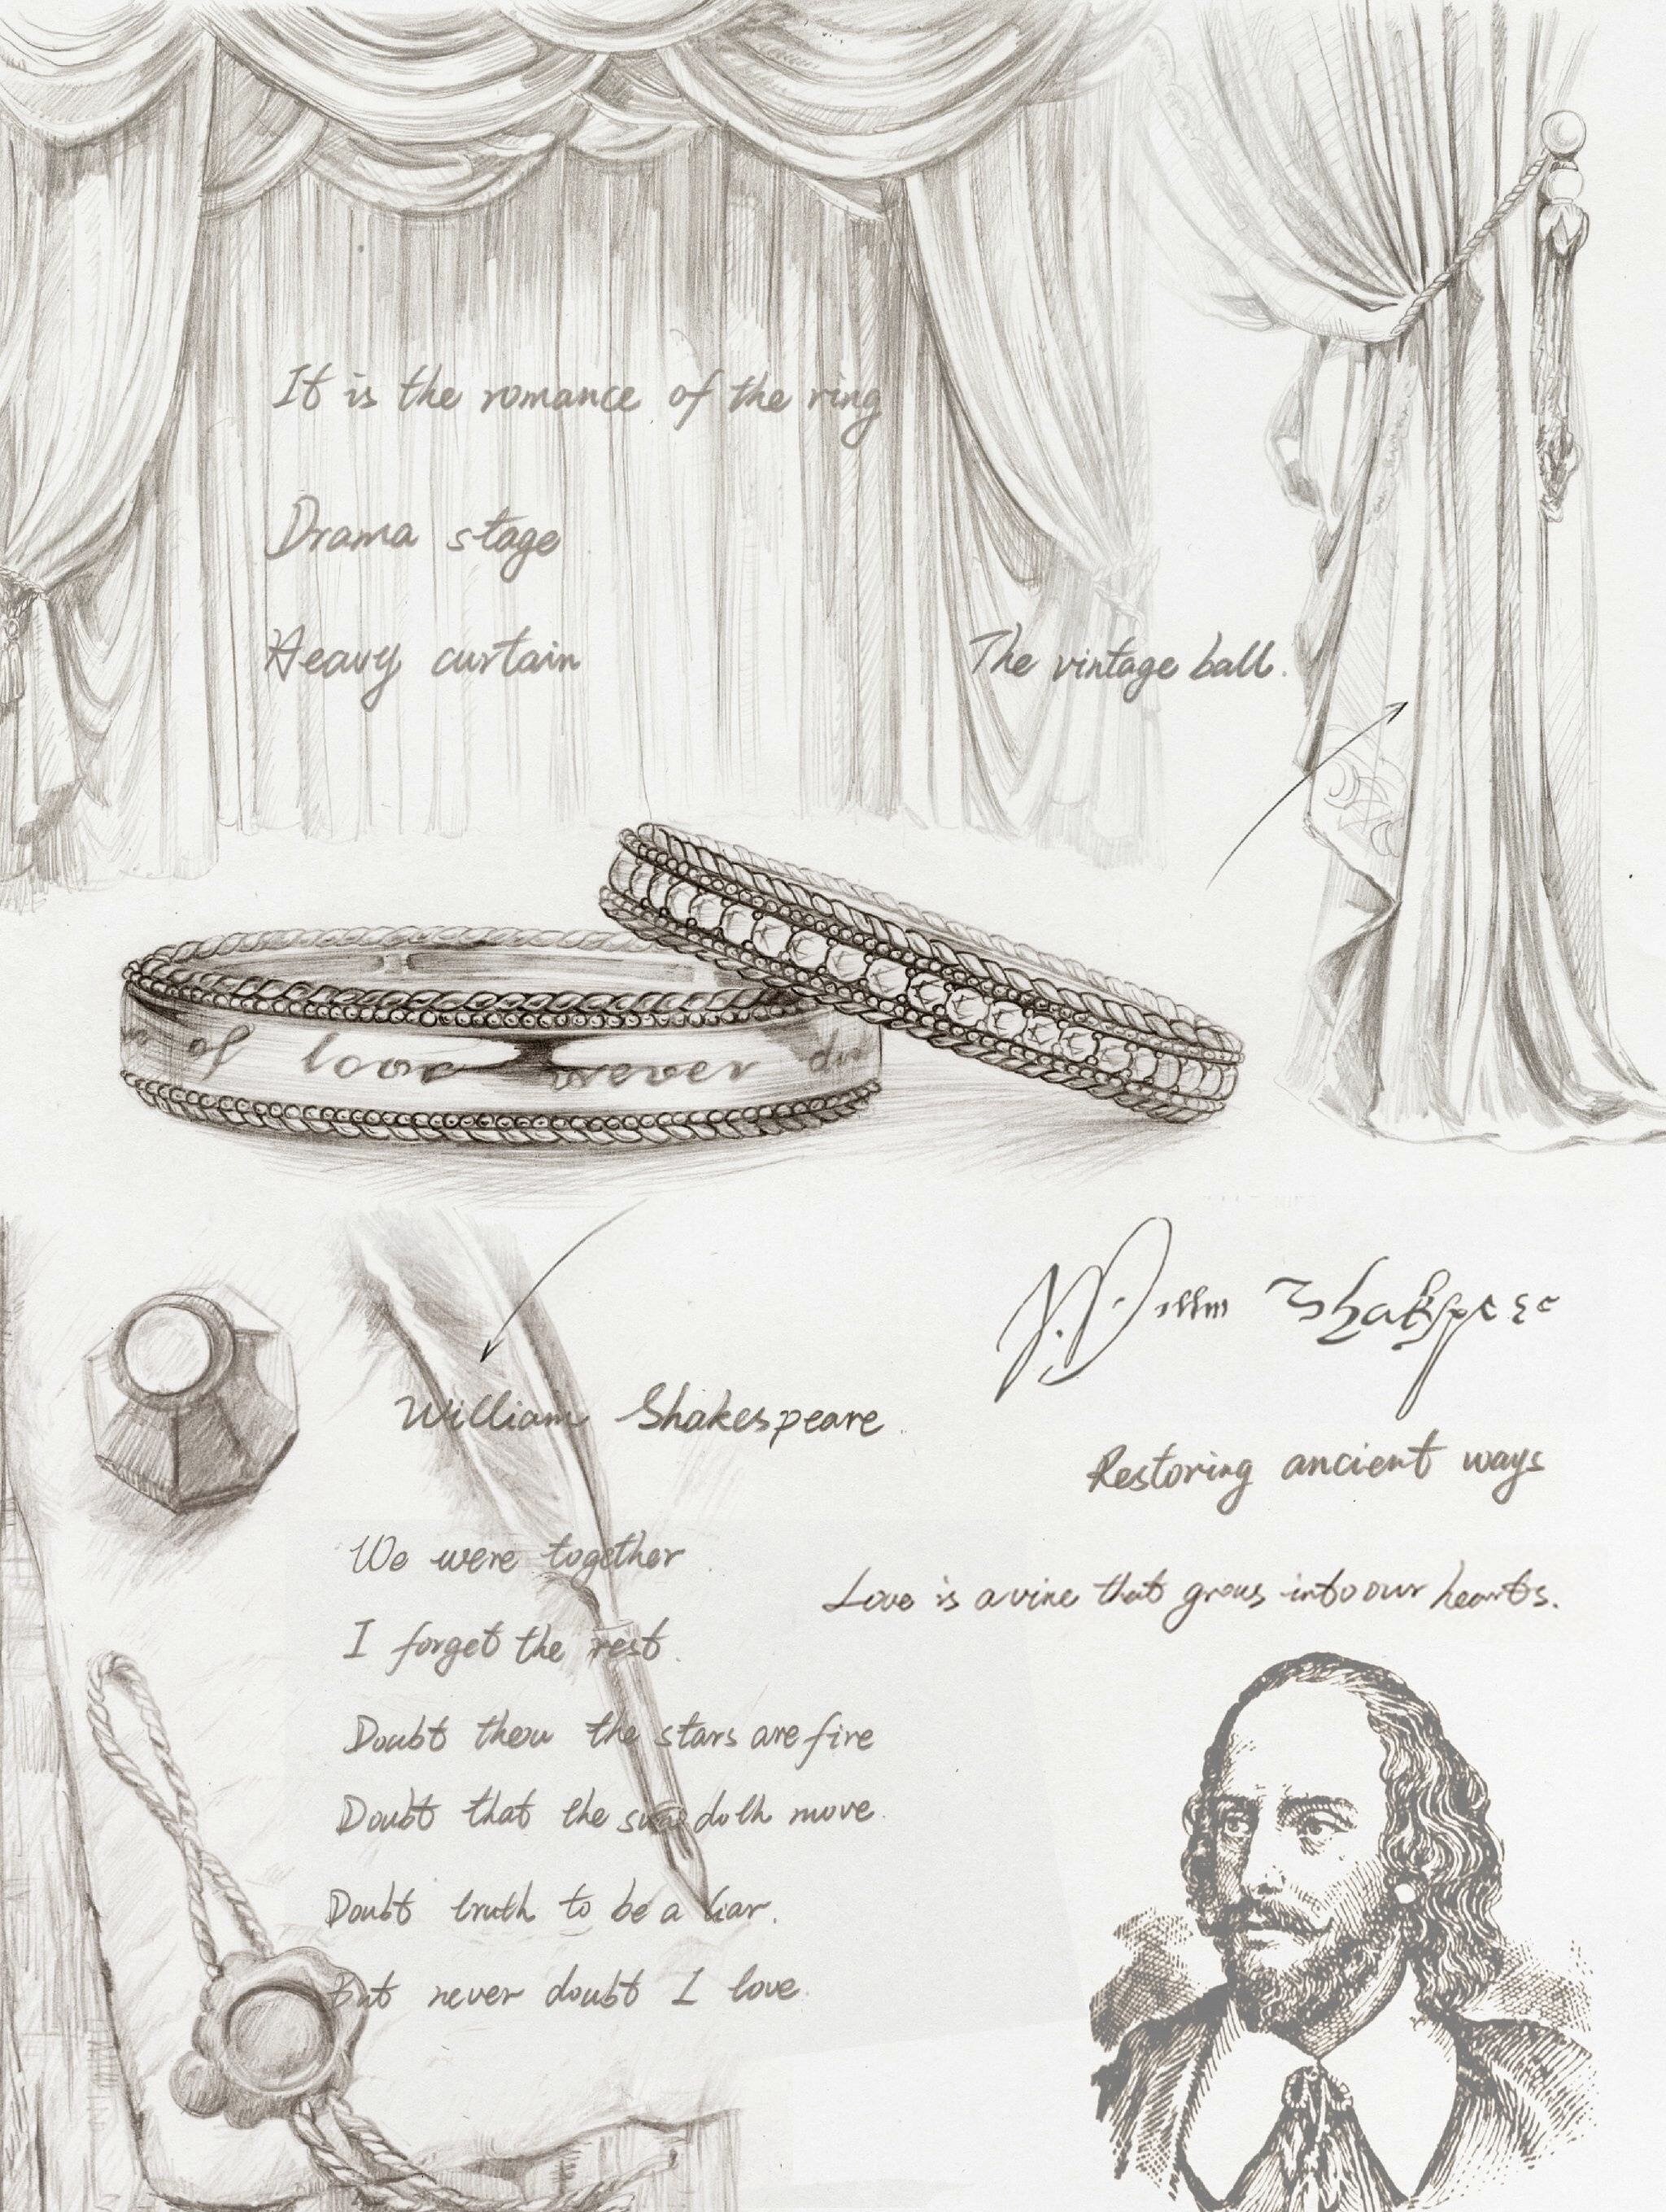 It is the romance of the ring
Drama stage
Heavy curtain
The vintage ball.
of love never
William Shakespeare.
Restoring ancient ways
We were together.
I forget the rest.
Love is a vine that grows into our hearts.
Doubt thou the stars are fire
Doubt that the sun doth move.
Doubt truth to be a liar.
But never doubt I love.